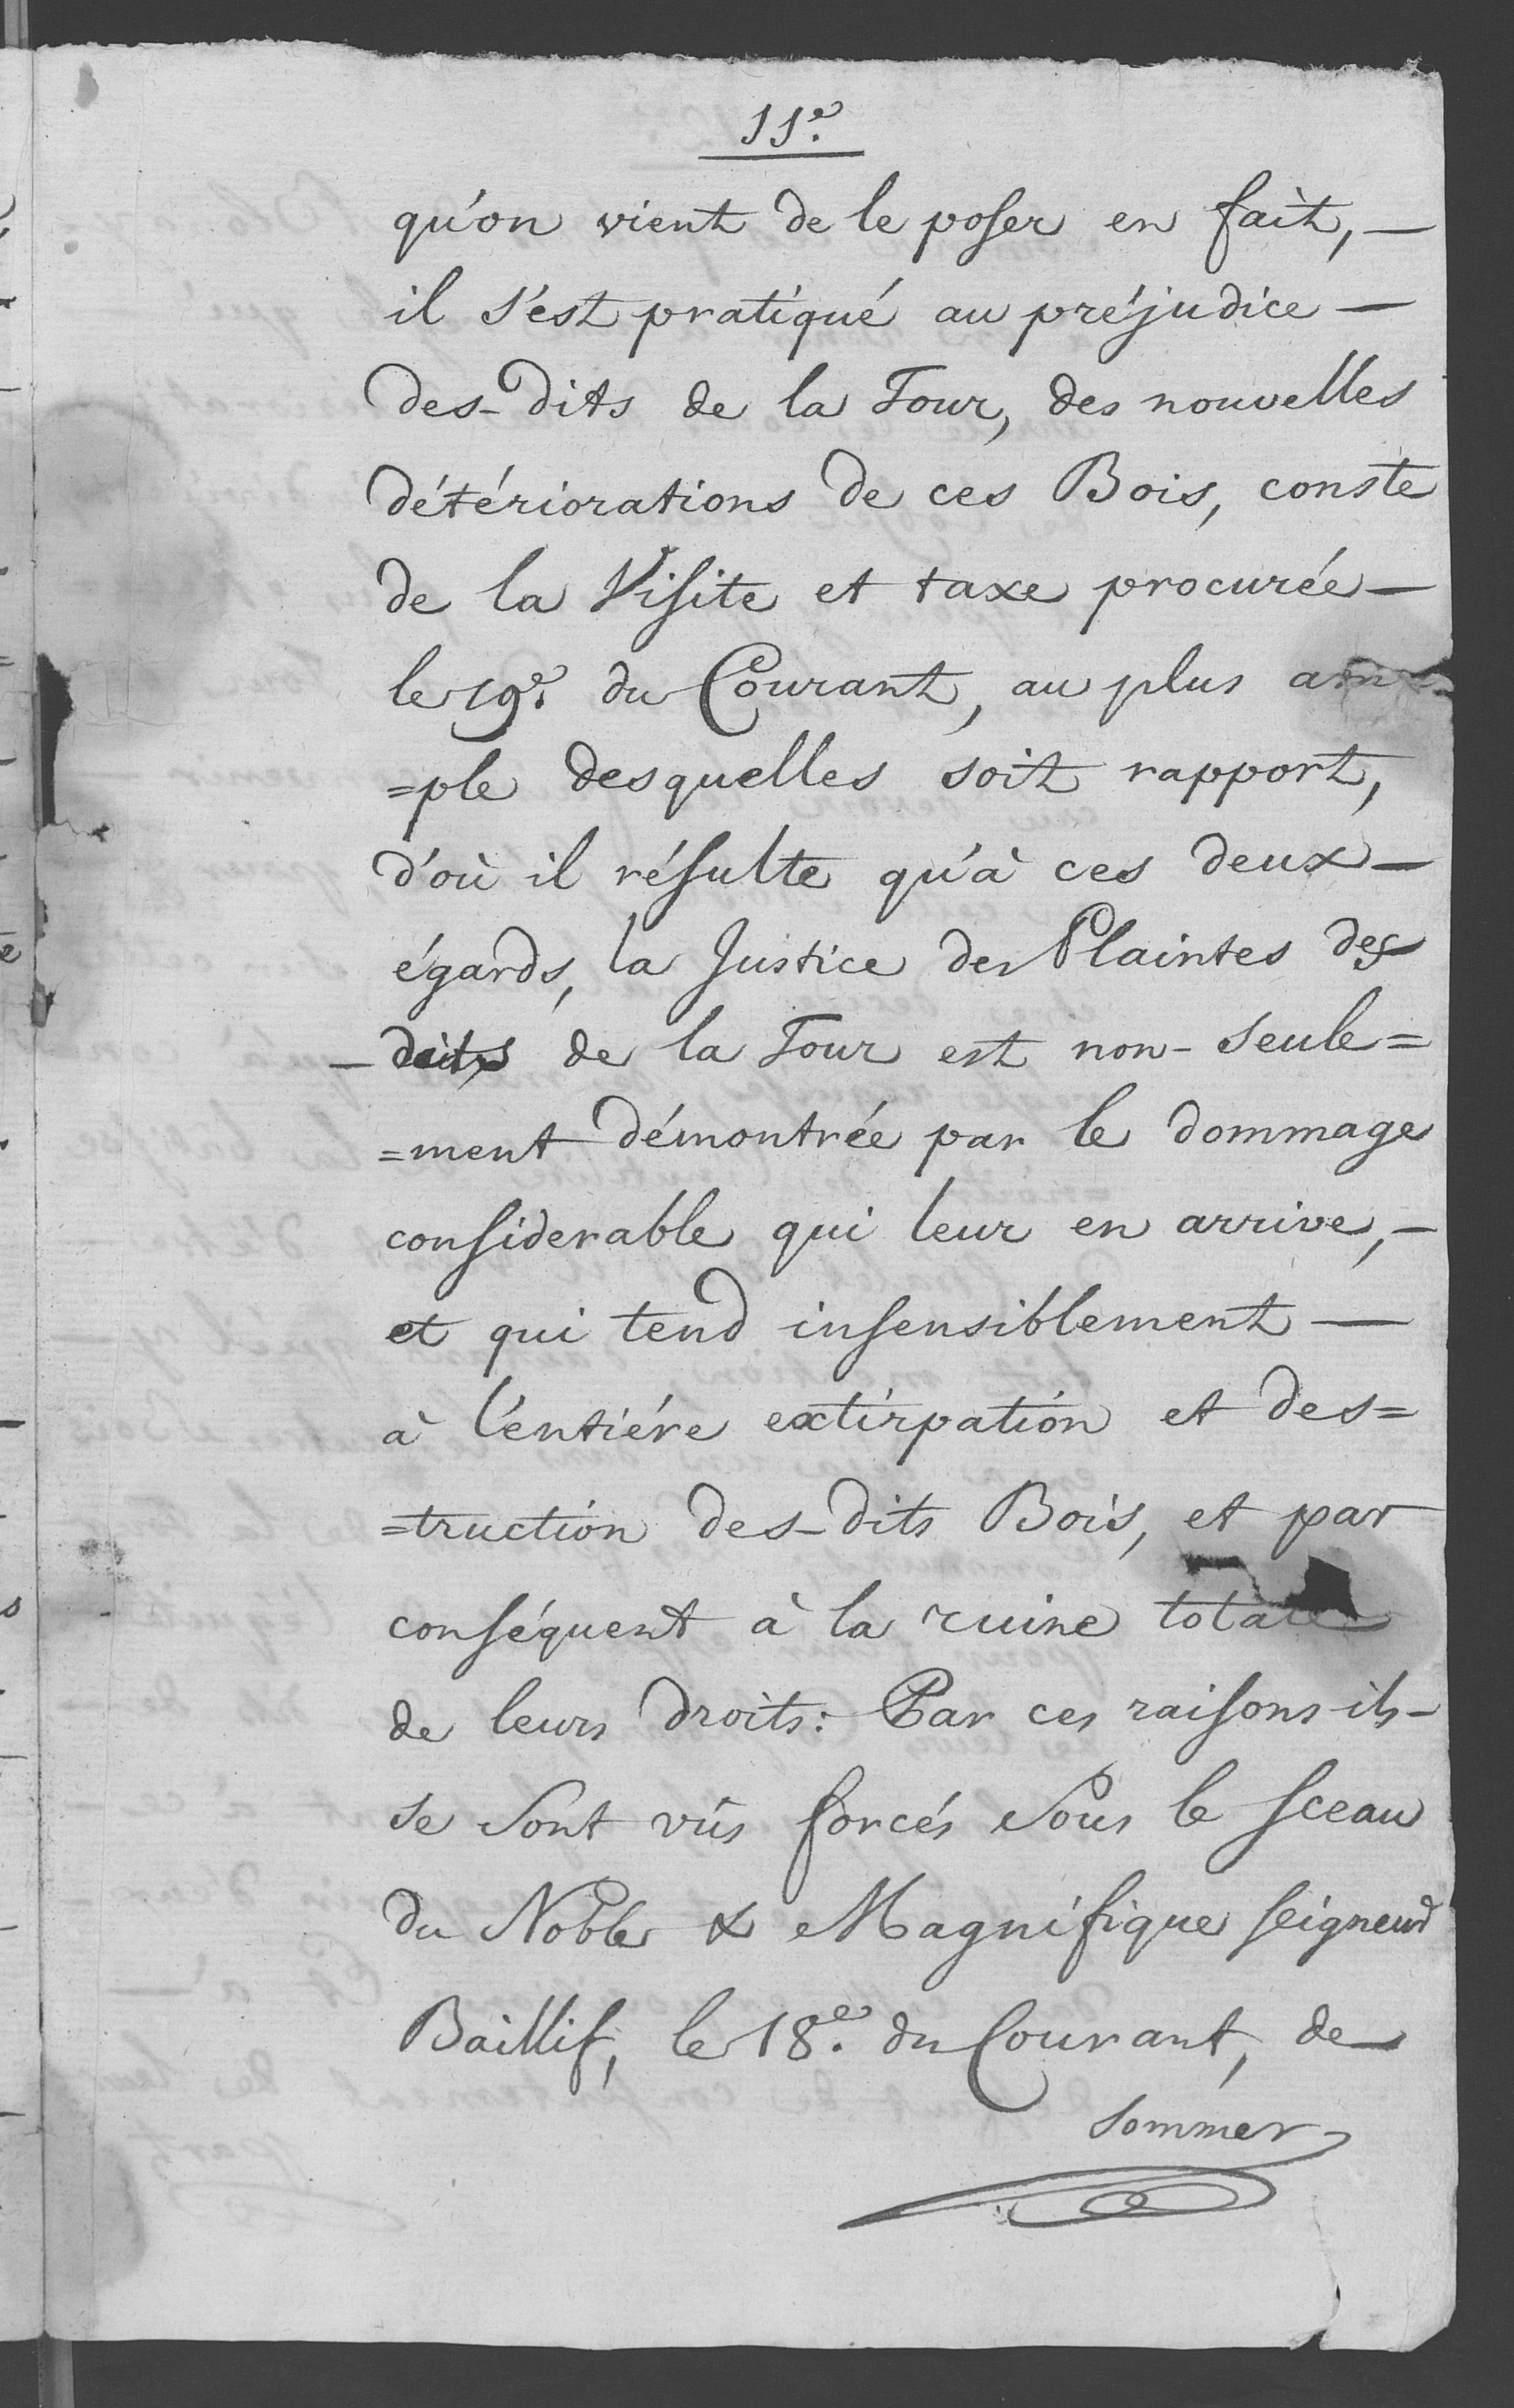 11.e
qu'on vient de le poser en fait, —
il s'est pratiqué au préjudice —
des-dits de la Tour, des nouvelles
détériorations de ces Bois, conste
de la Visite et taxe procurée —
le 19e. du Courant, au plus am
=ple desquelles soit rapport,
d'où il résulte qu'à ces deux —
égards, la Justice des Plaintes des
— dits de la Tour est non-seule=
=ment démontrée par le dommage
considerable qui leur en arrive, —
et qui tend insensiblement —
à l'entiére extirpation et des=
=truction des-dits Bois, et par
conséquent à la ruine totale
de leurs droits: Par ces raisons ils —
se sont vûs forcés sous le sceau
du Noble & Magnifique seigneur
Baillif, le 18e. du Courant, de
Sommer